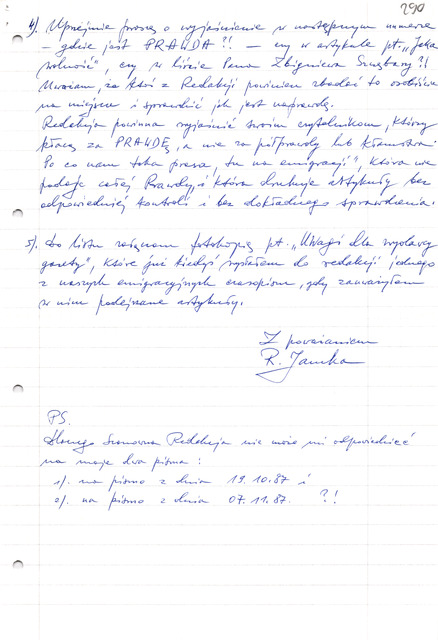 290
4). Uprzejmie proszę o wyjaśnienie w następnym numerze
– gdzie jest PRAWDA?! – czy w artykule pt. „Jaka
wolność", czy w liście Pana Zbigniewa ?!
Uważam, że ktoś z Redakcji powinien zbadać to osobiście
na miejscu i sprawdzić jak jest naprawdę.
Redakcja powinna wyjaśnić swoim czytelnikom, którzy
płacą za PRAWDĘ, a nie za półprawdy lub kłamstwa!
Po co nam taka prasa „tu na emigracji", która nie
podaje całej Prawdy, i która drukuje artykuły bez
odpowiedniej kontroli i bez dokładnego sprawdzenia.
5). Do listu załączam fotokopię pt. „Uwagi dla wydawcy
gazety", które już kiedyś wysłałem do redakcji jednego
z naszych emigracyjnych czasopism, gdy zauważyłem
w nim podejrzane artykuły.
Z poważaniem
R.
PS.
Dlaczego Szanowna Redakcja nie może mi odpowiedzieć
na moje dwa pisma:
1). na pismo z dnia 19.10.87 i
2). na pismo z dnia 07.11.87. ?!